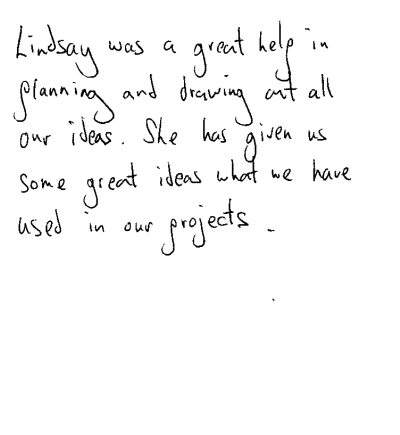 Lindsay was a great help in
planning and drawing out all
our ideas. She has given us
some great ideas what we have
used in our projects.